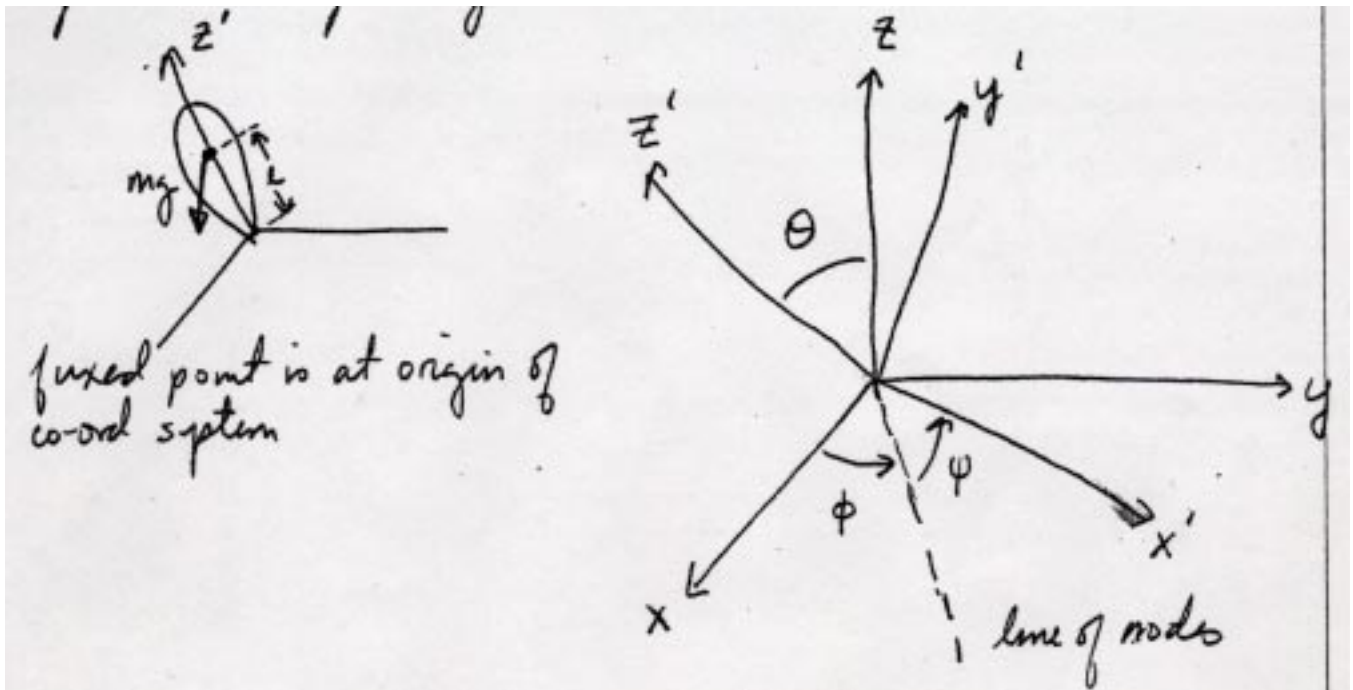 z'
mg
fixed point is at origin of
co-ord system
z
y'
z'
θ
y
ψ
ϕ
x'
x
line of nodes